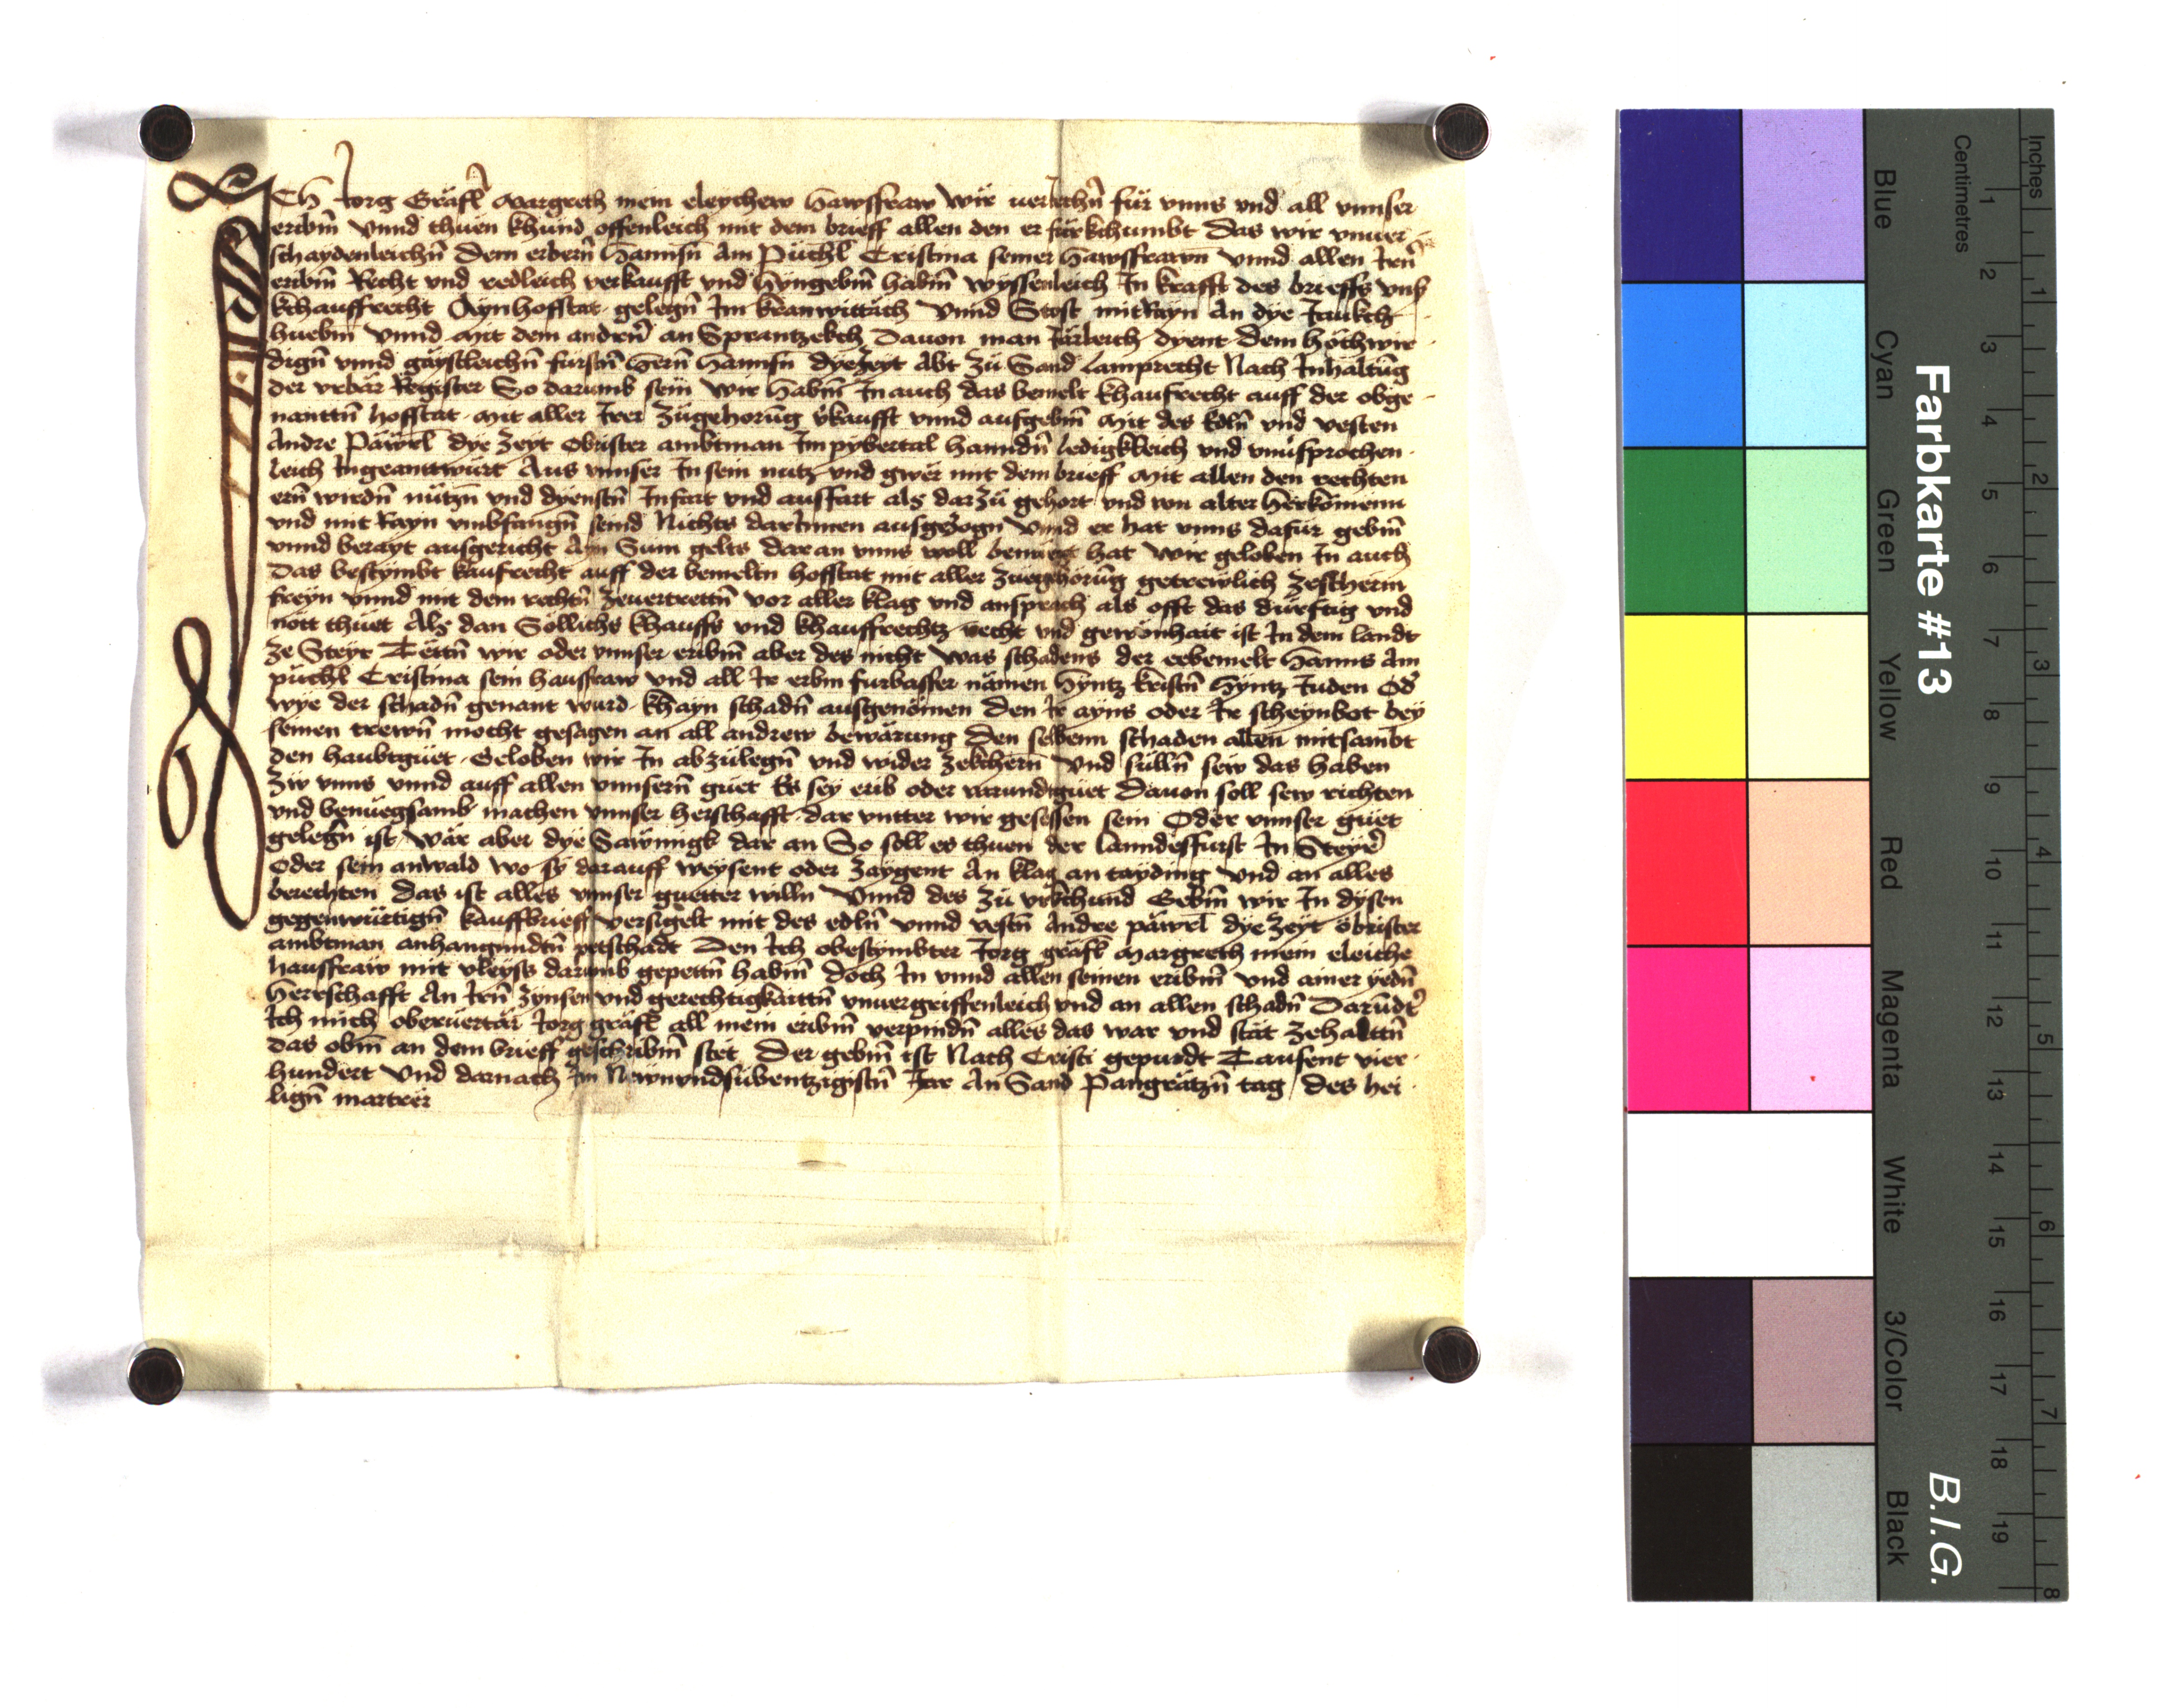 ICh Jorg Gräfl Margreth mein eleychew Hawsfraw Wir veriechn̄ für vnns vnd all vnnser
eribm̄ Vnnd thuen khund offenleich mit dem brieff allen den er fürkchumbt Das wir vnuer
schaydenleichn̄ Dem erbern̄ Hannsn̄ Am Püchl Cristina seiner Hawsfrawn Vnnd allen Jren̄
eribm̄ Recht vnd redleich verkaufft vnd Hyngebm̄ habm̄ wyssenleich Jn krafft des brieffs vnd
kchauffrecht Ayn hofftat gelegn̄ Jm kranwittach Vnnd Stost mit Rayn An dye
huebm̄ Vnnd Mit dem andern̄ an Davon man Järleich dyent dem höchwir
dign̄ vnnd gäystleichn̄ fürstn̄ Hern̄ Hannsn̄ dyezeyt Abt zü Sand Lamprecht Nach Jnhaltūg
der vrbär Register So darumb sein wir Habm̄ Jn auch das bemelt khaufrecht auff der obge
nanttn̄ hofftat Mit aller Jrer zügehorūg vkaufft vnnd aufgebm̄ Mit des Edln̄ vnd vesten
Andre Päwrl dye zeyt Obrister ambtman Jm pybertal hanndn̄ ledigkleich vnd vnuersprochen
leich Jngeanttwurt Aus vnnser Jn sein nutz vnd gwer mit dem brieff Mit allen den rechten
ern̄ wirdn̄ nützn̄ vnd dyenstn̄ Jnfart vnd ausfart als darzü gehort vnd von alter Herkömenn
vnd mit Rayn vmbfangn̄ seind Nichts darJnnen ausgezogn̄ Vnnd er hat vnns dafür gebm̄
vnnd berayt ausgericht Ayn Sum gelts daran vnns woll benuegt hat Wir geloben Jn auch
Das bestymbt kaufrecht auff der bemeltn hofftat mit aller zuegehörūg getrewlich zescherm
freyn vnnd mit dem rechtn̄ zeuertrettn̄ vor aller klag vnd ansprach als offt das durftig vnd
nott thuet Als dan Sollichs khauffs vnd khauffrechtz recht vnd gewonhait ist Jn dem landt
ze Steyr Tettn̄ wir oder vnnser eribm̄ aber des nicht Was schadens der eebemelt Hanns Am
püchl Cristina sein hausfraw vnd all Jr erbm furbasser nämen Hyntz kristn̄ Hyntz Juden Od
wye der schadn̄ genant wurd khayn schadn̄ ausgenömen Den Jr ayns oder Jr scheynbot bey
seinen trewn̄ mocht gesagen an all andrew bewärung Den selbenn schaden allen mitsambt
den haubtguet Geloben wir Jn abzülegn̄ vnd wider zekhern̄ Vnd sülln̄ sew das haben
zw vnns vnnd auff allen vnnsern̄ guet Es sey erib oder varundguet Dauon soll sew richten
vnd benuegsamb machen vnnser herschafft dar vntter wir gesessen sein Oder vnnser guet
gelegn̄ ist Wär aber dye Sawnigk dar an So soll es thuen der lanndesfurst Jn Steyr
Oder sein anwald wo sy darauff weysent oder zaygent An klag an tayding Vnd an alles
berechten Das ist alles vnnser guetter willn Vnnd des zü vrkchund Gebm̄ wir Jn dysen
gegenwürtign̄ kauffbrieff versigelt mit des edln̄ vnnd vestn̄ Andre päwrl dye zeyt öbrister
ambtman anhangundtn̄ petschadt Den Jch obestymbter Jorg gräfl Margreth mein eleiche
hausfraw mit vleyss darumb gepettn̄ habm̄ Doch Jn vnnd allen seinen eribm̄ vnd ainer yedn̄
Herrschafft An Jren̄ zynsen vnd gerechtigkaittn̄ vnuergriffenleich vnd an allen schadn̄ Darūdt
Jch mich Jorg gräfl all mein eribm̄ verpindn̄ alles das war vnd stät zehalttn̄
das obm̄ an dem brieff geschribm̄ stet Der gebm̄ ist Nach Cristi gepurdt Tausent vier
hundert Vnd darnach Jm Newnvndsübentzigistn̄ Jar An Sand Pangrätzn̄ tag des hei
lign̄ martrer
Farbkarte #13
B.I.G.
Blue
Cyan
Green
Yellow
Red
Magenta
White
3/Color
Black
Centimetres
1 2 3 4 5 6 7 8 9 10 11 12 13 14 15 16 17 18 19
Inches
1 2 3 4 5 6 7 8